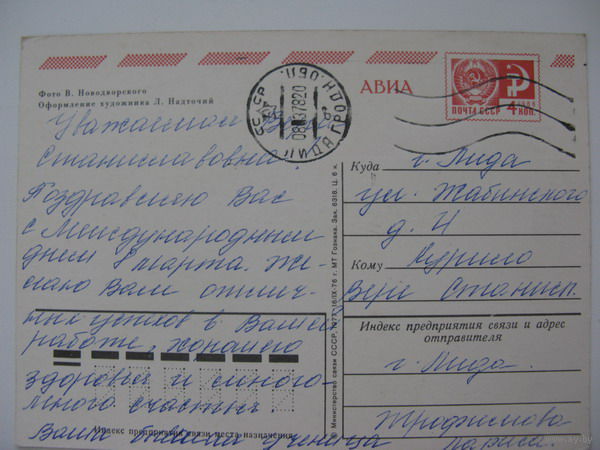 Фото В. Новодворского
Оформление художника Л. Надточий
АВИА
ПОЧТА СССР
4 коп.
СССР
08037820
Уважаемая Вера
Станиславовна
Поздравляю Вас
с Международным
днем 8 марта. Же-
лаю Вам отлич-
ных успехов в Вашей
работе, хорошего
здоровья и много-
много счастья
Ваша бывшая ученица
Индекс предприятия связи места назначения
Министерство связи СССР, 1977. 16/IX-76 г. МТ Гознака. Зак. 6318. Ц. 6 к.
Куда г. Лида
ул. Жабинского
д. 4
Кому Курило
Вере Станисл.
Индекс предприятия связи и адрес
отправителя
г. Лида
Трофимова
Лариса